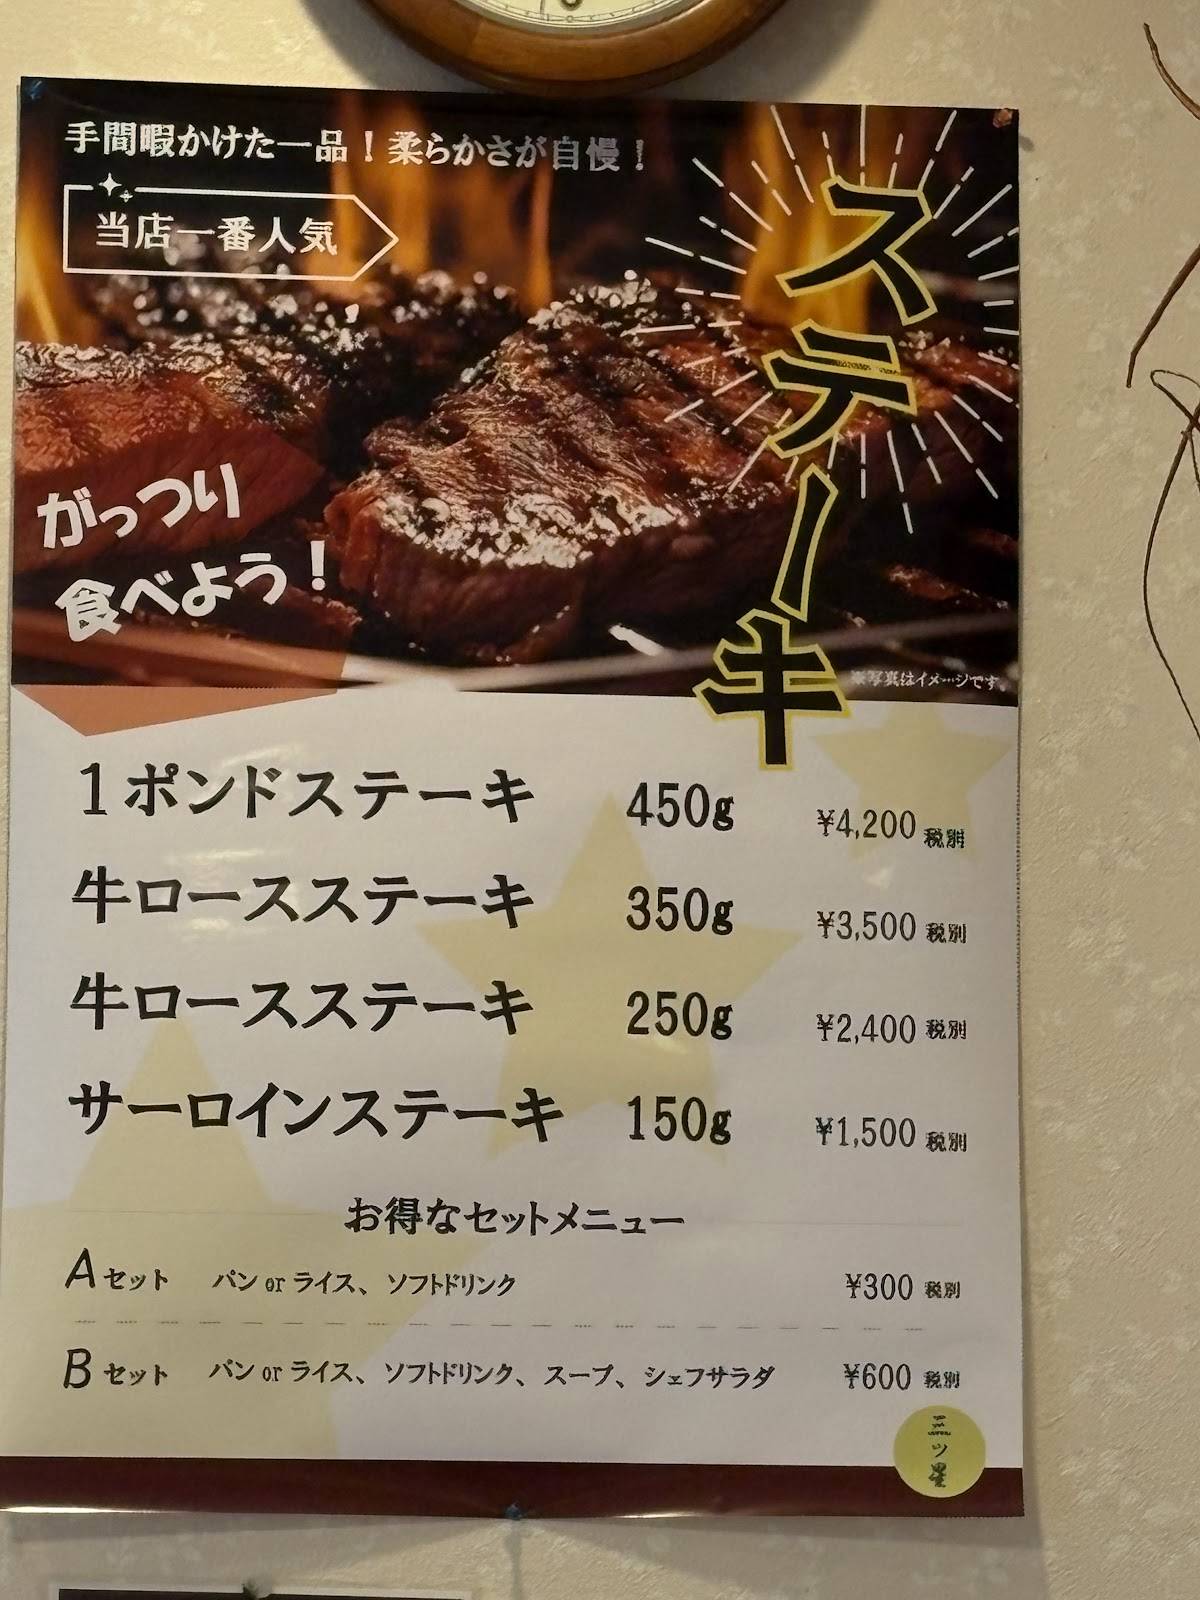 手間暇かけた一品！柔らかさが自慢！
当店一番人気
ステーキ
がっつり
食べよう！
※写真はイメージです。
1ポンドステーキ 450g ¥4,200 税別
牛ロースステーキ 350g ¥3,500 税別
牛ロースステーキ 250g ¥2,400 税別
サーロインステーキ 150g ¥1,500 税別
お得なセットメニュー
Aセット パン or ライス、ソフトドリンク ¥300 税別
Bセット パン or ライス、ソフトドリンク、スープ、シェフサラダ ¥600 税別
三ツ星